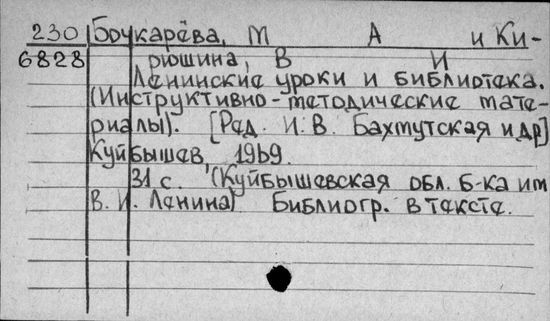 230 Бочкарёва, М А и Ки-
6828 рюшина, В И
Ленинские уроки и библиотека.
(Инструктивно-методические мате-
риалы). [Ред. И. В. Бахмутская и др]
Куйбышев, 1969.
31 с. (Куйбышевская обл. б-ка им
В. И. Ленина) Библиогр. в тексте.